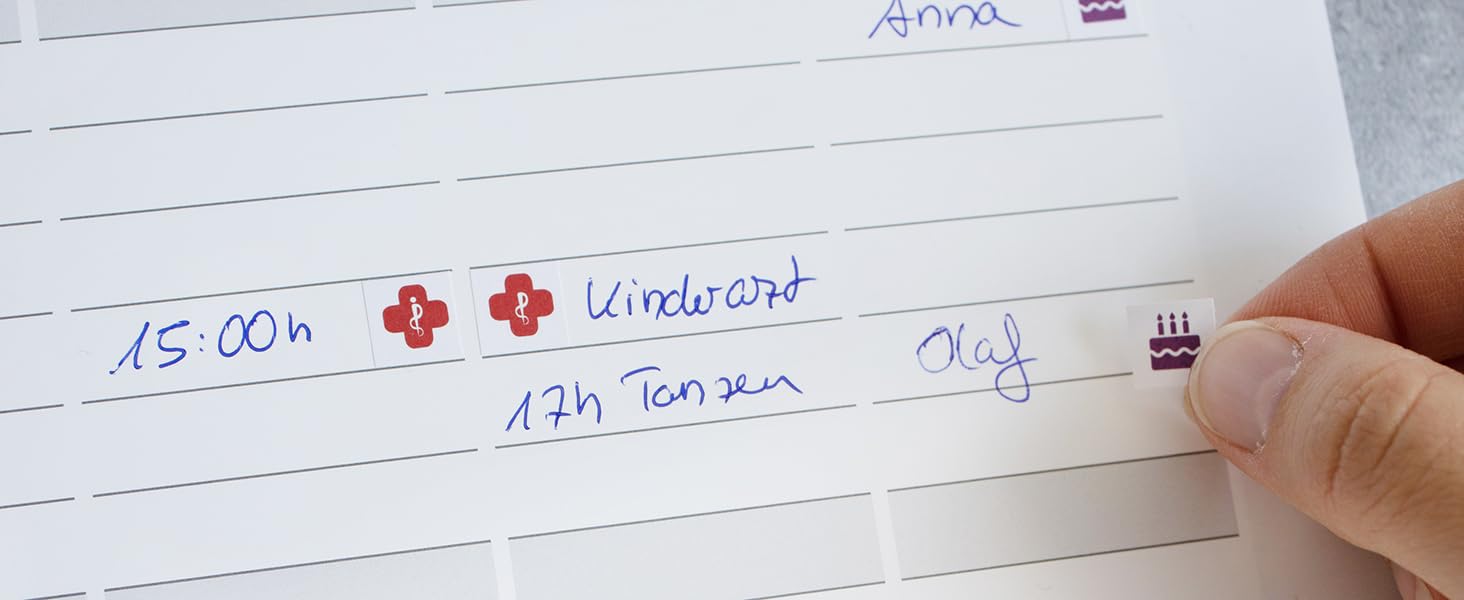 Anna
15:00h
Kinderarzt
17h Tanzen
Olaf